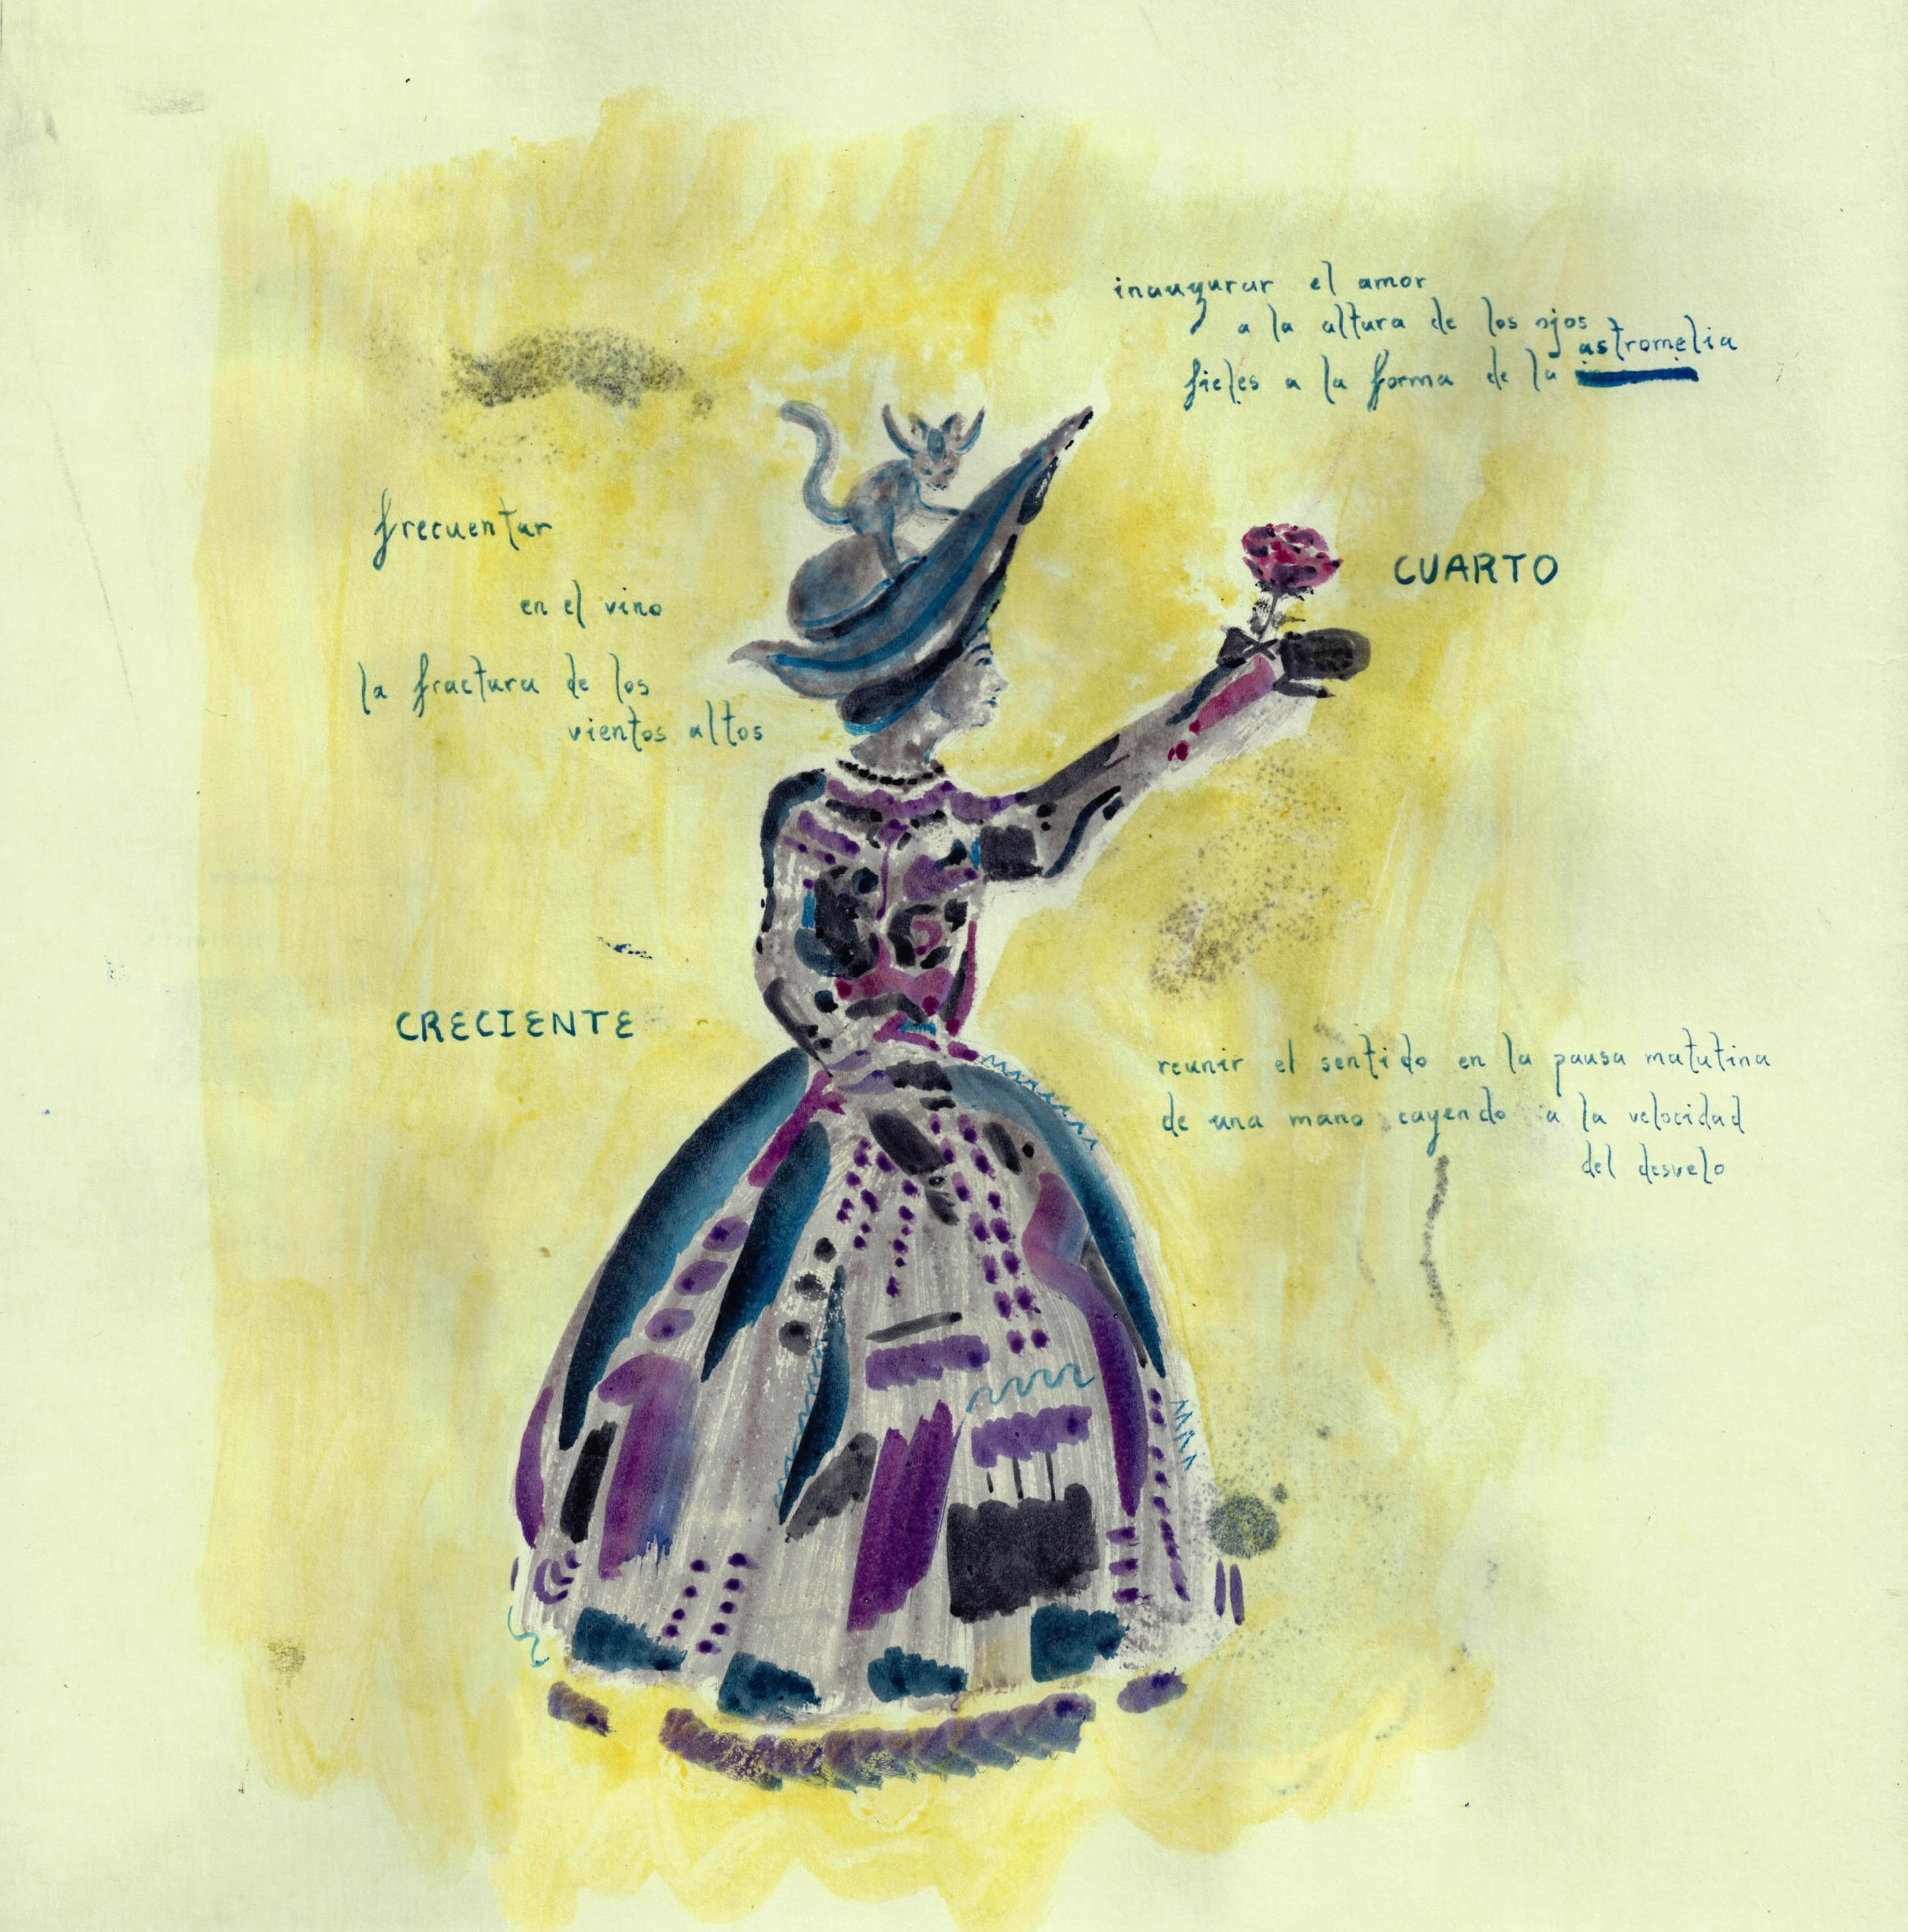 inaugurar el amor
a la altura de los ojos
fieles a la forma de la astromelia
frecuentar
en el vino
la fractura de los
vientos altos
CUARTO
CRECIENTE
reunir el sentido en la pausa matutina
de una mano cayendo a la velocidad
del desvelo